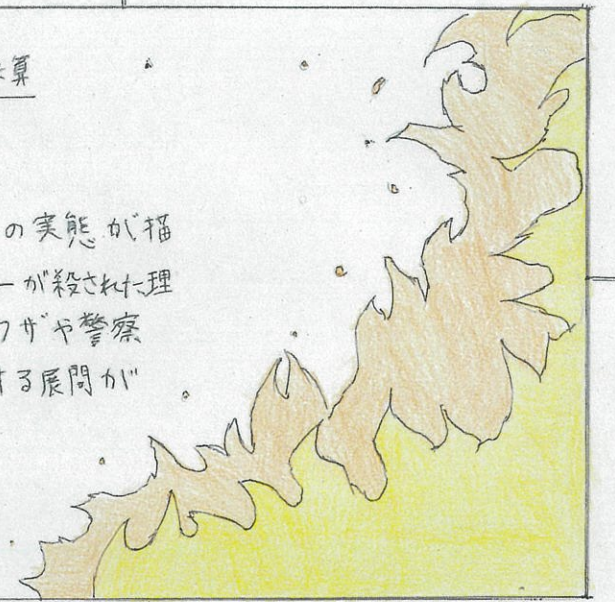 算
の実態が描
ーが殺された理
クザや警察
する展開が